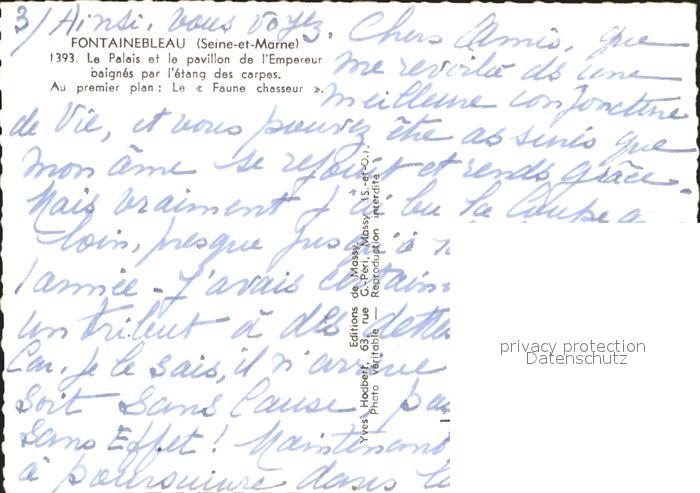 3/ Ainsi, vous voyez, Chers Amis, que
FONTAINEBLEAU (Seine-et-Marne)
1393. Le Palais et le pavillon de l'Empereur
baignés par l'étang des carpes.
Au premier plan : Le « Faune chasseur ».
me revoilà ds une
meilleure conjoncture
de Vie, et vous pouvez être assurés que
mon âme se réjouit et rends grâce.
Mais vraiment j'ai bu la Coupe a
loin, presque jusqu'à
l'année - j'avais certainem
un tribut à des dettes
Car, je le sais, il n'arrive
soit sans Cause, pas
sans Effet ! Maintenant
à poursuivre dans la
Editions de Massy,
Yves Hodbert, 63, rue G.-Péri, Massy (S.-et-O.).
Photo véritable — Reproduction interdite
privacy protection
Datenschutz